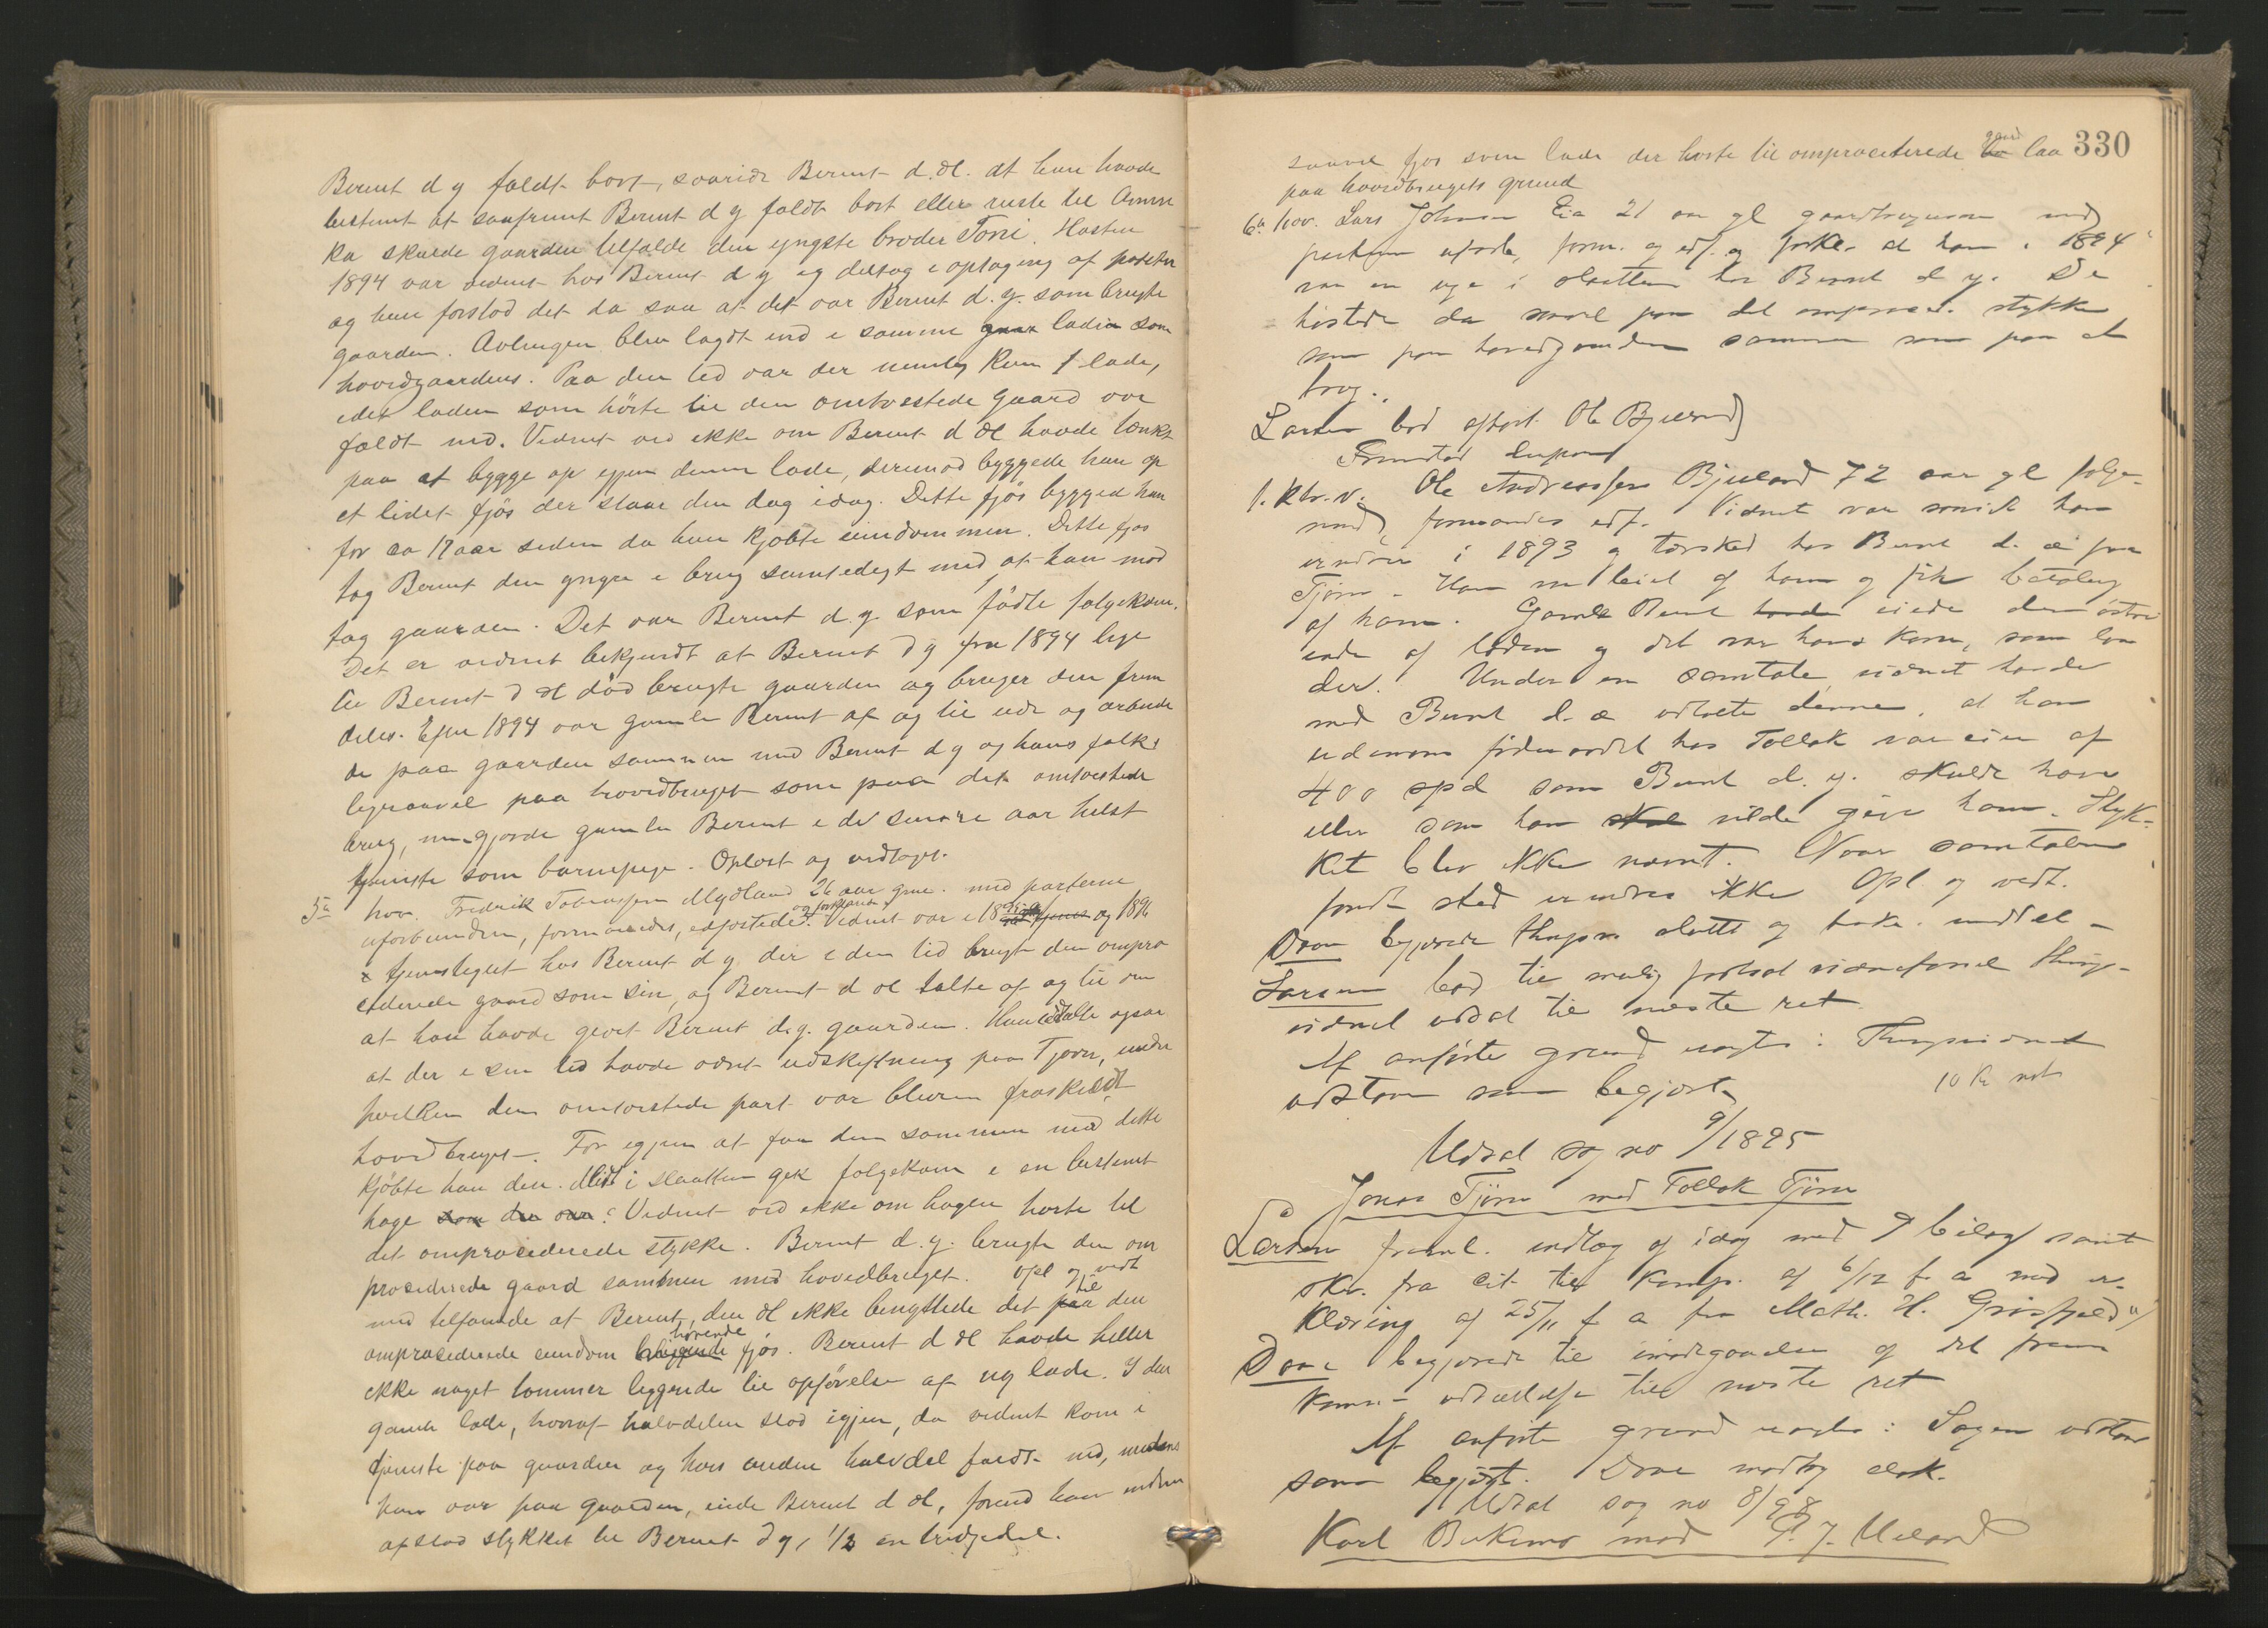 Bernt d y faldt bort, svarede Bernt d. æl. at han havde
bestemt at saafremt Bernt d y faldt bort eller reiste til Amri
ka skulde gaarden tilfalde den yngste broder Toni. Høsten
1894 var vidnet hos Bernt d y og deltog i optaging af poteter
og han forstod det da saa at det var Bernt d. y. som brugte
gaarden. Avlingen blev lagdt ind i samme laden som
hovedgaardens. Paa den tid var der nemlig kun 1 lade,
idet laden som hørte til den omtvistede gaard var
faldt ned. Vidnet ved ikke om Bernt d æl havde tænkt
paa at bygge op igjen denne lade, derimod byggede han op
et lidet fjøs der staar den dag idag. Dette fjøs bygged han
for ca 17 aar siden da han kjøbte eiendommen. Dette fjøs
tog Bernt den yngre i brug samtidigt med at han mod
tog gaarden. Det var Bernt d. y. som fødte følgekøerne.
Det er vidnet bekjendt at Bernt d y fra 1894 lige
til Bernt d æl død brugte gaarden og bruger den frem
deles. Efter 1894 var gamle Bernt af og til ude og arbeide
de paa gaarden sammen med Bernt d y og hans folk
ligesaavel paa hovedbruget som paa det omtvistede
brug, men gjorde gamle Bernt i de senere aar helst
tjeneste som barnepige. Oplæst og vedtaget.
5te hov. Fredrik Tobiassen Mydland 26 aar gml. med parterne
uforbunden, formanedes, edfæstedes og forklarede: Vidnet var i 18 og 1896
i tjenstgjort hos Bernt d y. der i den tid brugte den ompro
cederede gaard som sin, og Bernt d æl talte af og til om
at han havde givet Bernt d. y. gaarden. Han udtalte ogsaa
at der i sin tid havde været udskiftning paa Tjørn, under
hvilken den omtvistede part var bleven fraskildt
hovedbruget. For igjen at faa den sammen med dette
kjøbte han den. Midt i slaatten gik følgekøerne i en bestemt
hage som der var. Vidnet ved ikke om hagen hørte til
det omprocederede stykke. Bernt d. y. brugte den om
procederede gaard sammen med hovedbruget. Opl og vedt
med tilføiende at Bernt, den æl ikke benyttede det paa til den
omprocederede eiendom liggende hørende fjøs. Bernt d æl havde heller
ikke noget tømmer liggende til opførelse af ny lade. I den
gamle lade, hvoraf halvdelen stod igjen, da vidnet kom i
tjeneste paa gaarden og hvis anden halvdel faldt ned, medens
han var paa gaarden, eiede Bernt d æl, forend han
afstod stykket til Bernt d y, 1/2 en tredjedel.
330
saavel fjøs som lade der hørte til omprocederede gaard laa
paa hovedbrugets grund
6te hov. Lars Johnsen Lia 21 aar gl gaardbrugersøn med
parterne uforb., form. og edf. og forkl. at han i 1894
var en uge i slaatten hos Bernt d y. De
høstede da saavel paa det omproced. stykke
som paa hovedgaarden sammen som paa et
brug.
Larsen bød afhørt Ole Bjuland
Fremstod derpaa
1. ktr. v. Ole Andreassen Bjuland 72 aar gl følge-
mand, formanedes edf. Vidnet var saavidt han
erindrer i 1893 og tærsked hos Bernt d. æ paa
Tjørn. Han var leiet af ham og fik betaling
af ham. Gamle Bernt eiede den østre
ende af laden og det var hans korn, som laa
der. Under en samtale, vidnet havde
med Bernt d. æ udtalte denne, at han
udenom føderaadet hos Tollak var eier af
400 spd som Bernt d. y. skulde have
eller som han skal vilde give ham. Styk-
ket blev ikke nævnt. Naar samtalen
fandt sted erindres ikke Opl. og vedt.
Daae begjærede thingsv. sluttet og besk. meddel-
Larsen bød til mulig fortsat vidneførsel thing-
vidnet udsat til næste ret.
Af anførte grund eragtes: Thingvidnet
udstaar som begjært.
10 Kr
Udsat sag no 9/1895
Jonas Tjørn mod Tollak Tjørn
Larsen freml. indlæg af idag med 9 bilag samt
skr. fra cit. til komp. af 6/12 f a med er-
klæring af 25/11 f a fra Math. H. Grøsfjeld
Daae begjærede til imødegaaelse af det frem
komne udsættelse til næste ret
Af anførte grund eragtes: Sagen udstaar
som begjært. Daae modtog dok.
Udsat sag no 8/98
Karl mod P. J. Ueland